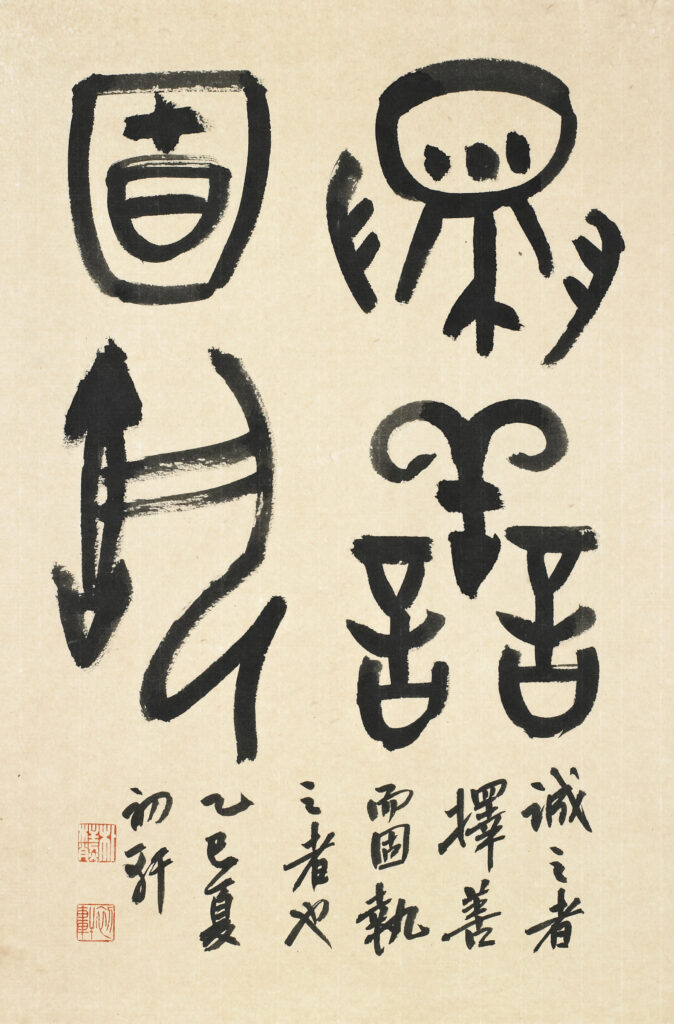 擇善
固執
誠之者
擇善
而固執
之者也
乙巳夏
初軒
初軒